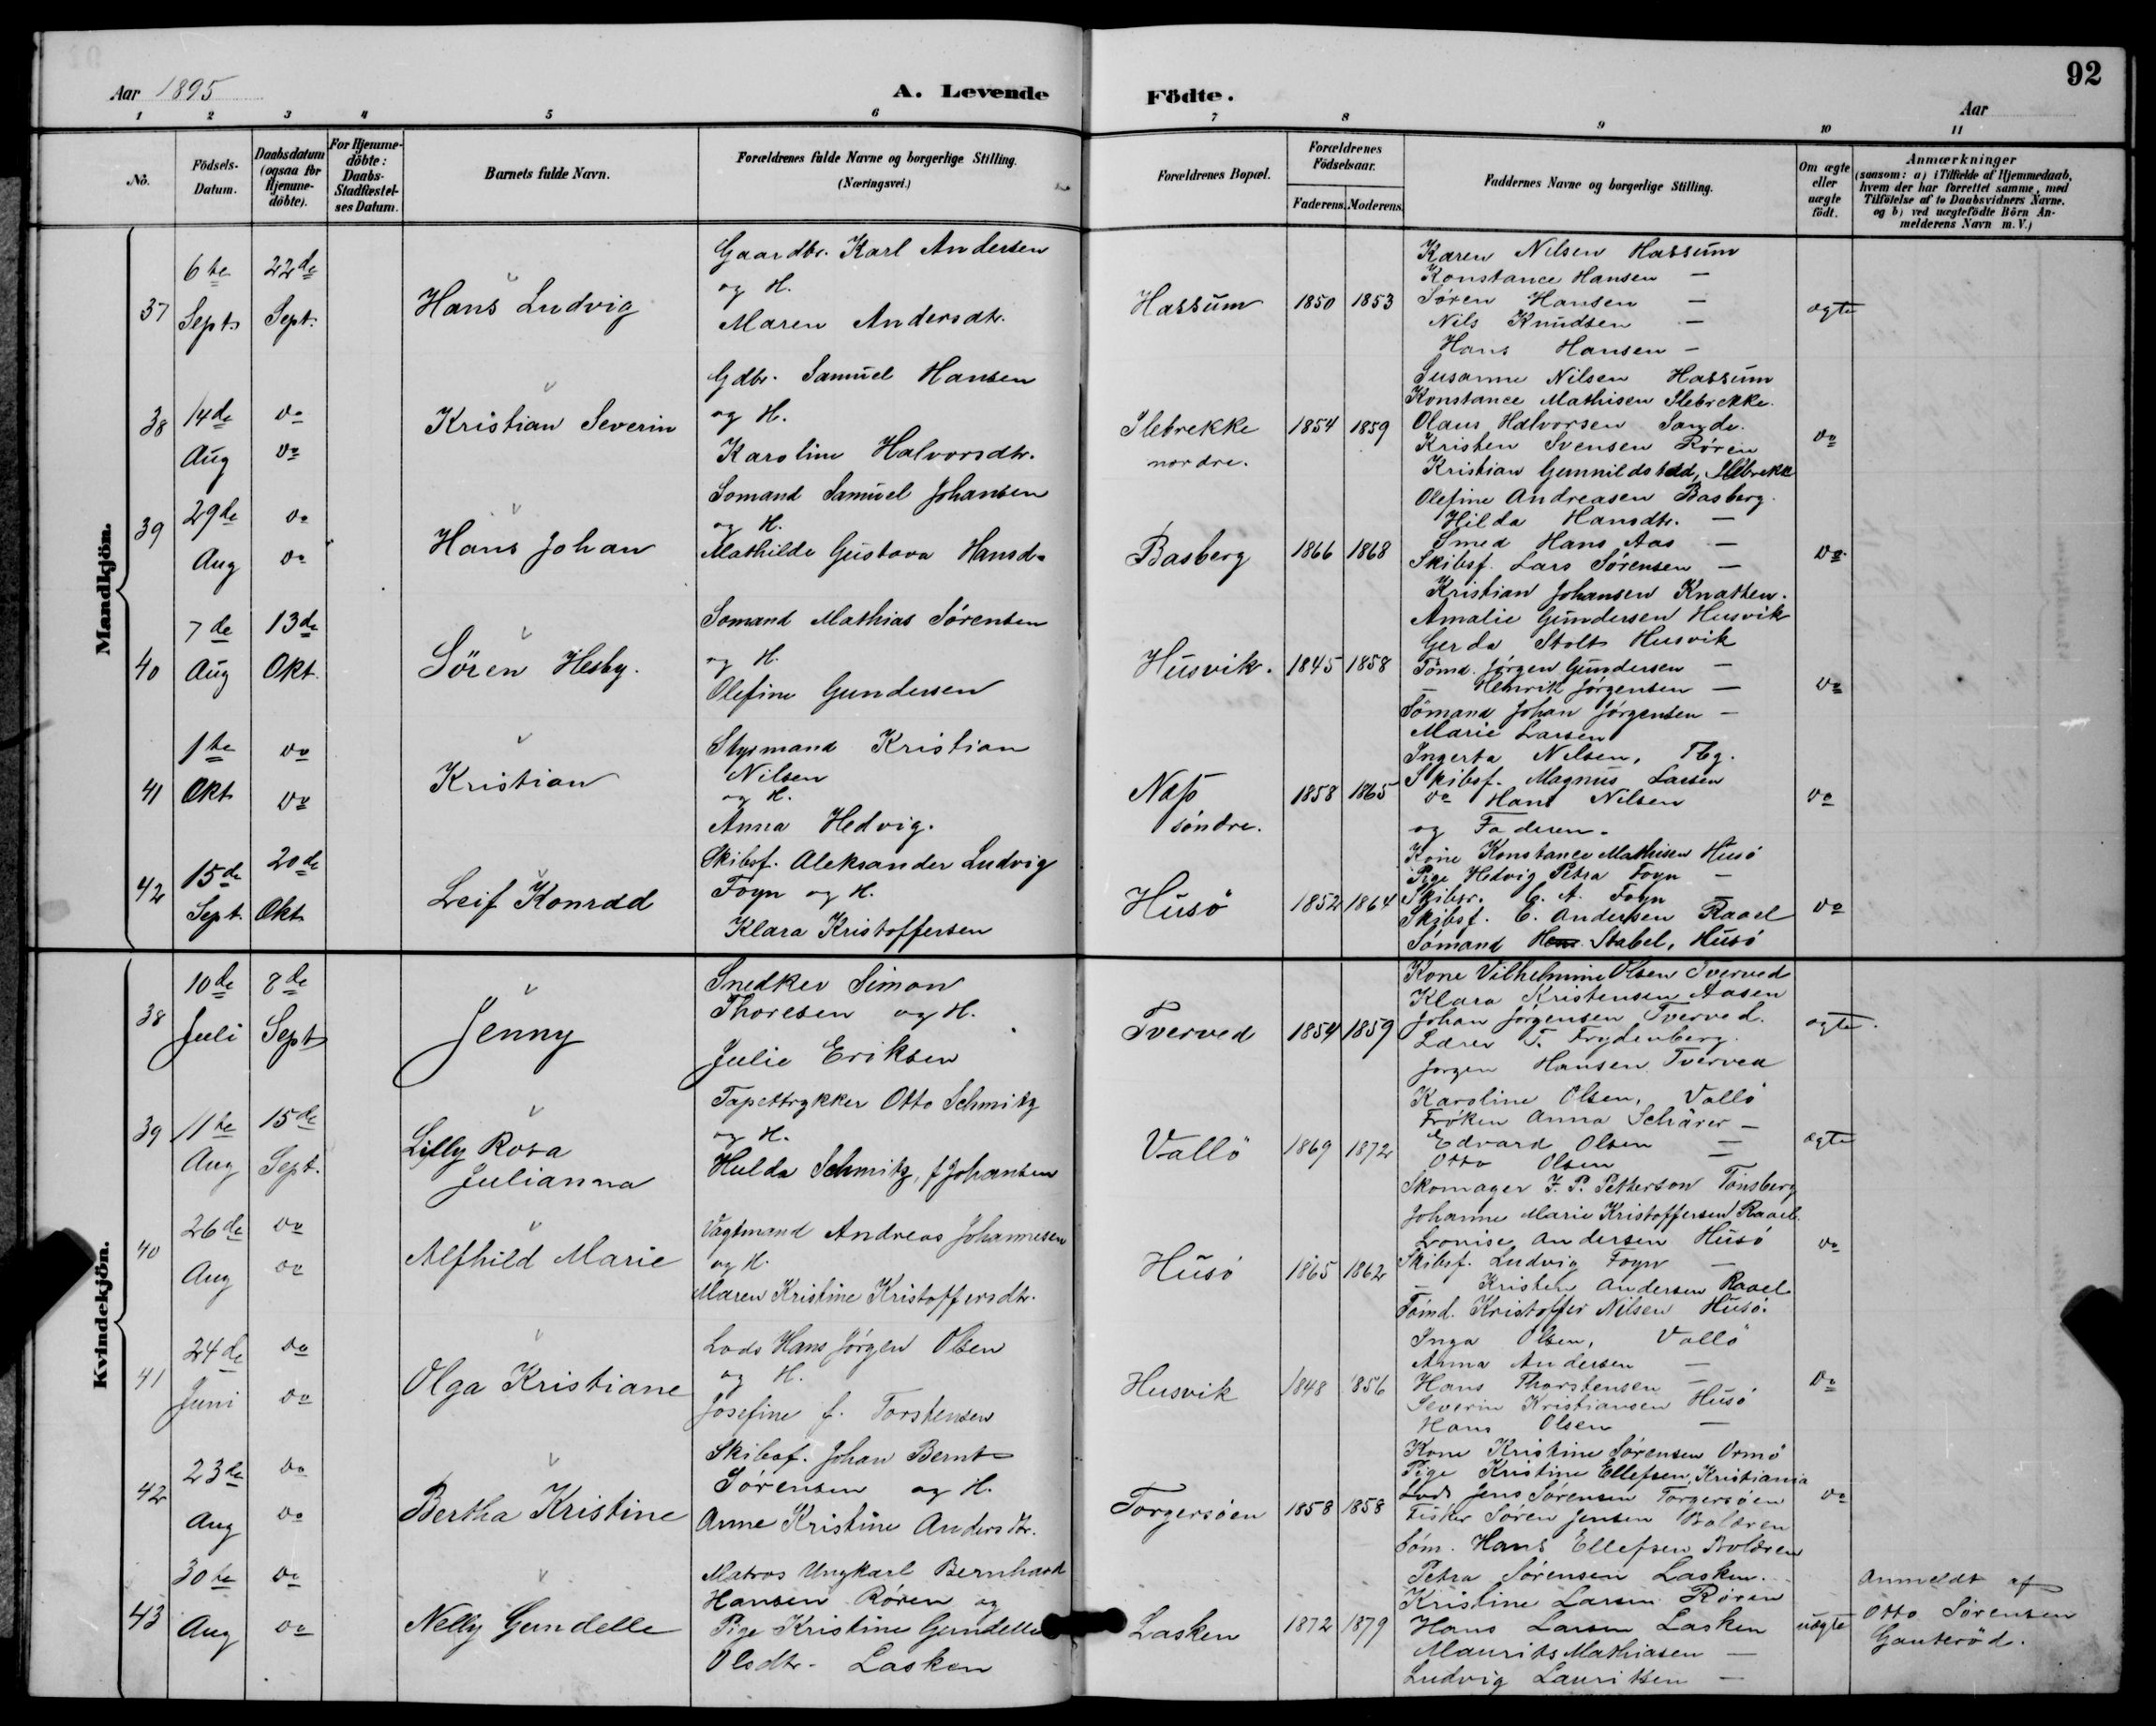 92
Aar 1895
A. Levende Födte.
Aar
1 2 3 4 5 6 7 8 9 10 11
No.
Födsels-Datum.
Daabsdatum (ogsaa for Hjemme-döbte).
For Hjemme-döbte: Daabs-Stadfæstel-ses Datum.
Barnets fulde Navn.
Forældrenes fulde Navne og borgerlige Stilling. (Næringsvei.)
Forældrenes Bopæl.
Forældrenes Födselsaar.
Faderens. Moderens.
Faddernes Navne og borgerlige Stilling.
Om ægte eller uægte födt.
Anmærkninger (saasom: a) i Tilfælde af Hjemmedaab, hvem der har forrettet samme, med Tilföielse af to Daabsvidners Navne. og b) ved uægtefödte Börn An-melderens Navn m. V.)
Mandkjön.
37
6te Sept
22de Sept.
Hans Ludvig
Gaardbr. Karl Andersen
og H.
Maren Andersdtr.
Hassum
1850 1853
Karen Nilsen Hassum
Konstance Hansen —
Sören Hansen —
Nils Knudsen —
Hans Hansen —
ægte
38
14de Aug
do do
Kristian Severin
Gdbr. Samuel Hansen
og H.
Karoline Halvorsdtr.
Slebrekke
nordre.
1854 1859
Susanne Nilsen Hassum
Konstance Mathisen Slebrekke.
Olaus Halvorsen Sande.
Kristen Svensen Røren
Kristian Gunnildstad, Slebrekke
do
39
29de Aug
do do
Hans Johan
Somand Samuel Johansen
og H.
Mathilde Gustava Hansd.
Basberg
1866 1868
Olefine Andreasen Basberg.
Hilda Hansdtr. —
Smed Hans Aas —
Skibsf. Lars Sörensen —
Kristian Johansen Knatten.
do
40
7de Aug
13de Okt.
Sören Hesby.
Somand Mathias Sörensen
og H.
Olefine Gundersen
Husvik.
1845 1858
Amalie Gundersen Husvik
Gerda Stolt Husvik
Tömd. Jörgen Gundersen —
— Henrik Jörgensen —
Sömand Johan Jörgensen —
do
41
1te Okt
do do
Kristian
Stysmand Kristian
Nilsen
og H.
Anna Hedvig.
Næs
söndre.
1858 1865
Marie Larsen
Ingerta Nilsen, Tbg.
Skibsf. Magnus Larsen
do Hans Nilsen
og Faderen.
do
42
15de Sept.
20de Okt.
Leif Konrad
Skibsf. Aleksander Ludvig
Foyn og H.
Klara Kristoffersen
Husö
1852 1864
Kone Konstance Mathisen Husö
Pige Hedvig Petra Foyn —
Skibsr. C. A. Foyn —
Skibsf. E. Andersen Raael
Sömand Stabel, Husö
do
Kvindekjön.
38
10de Juli
8de Sept
Jenny
Snedker Simon
Thoresen og H.
Julie Eriksen
Tverved
1854 1859
Kone Vilhelmine Olsen Tverved
Klara Kristensen Aasen
Johan Jörgensen Tverved.
Lærer T. Frydenberg.
Jörgen Hansen Tverved
ægte.
39
11te Aug
15de Sept.
Lilly Rosa
Julianna
Tapettrykker Otto Schmitz
og H.
Hulda Schmitz, f Johansen
Vallö
1869 1872
Karoline Olsen, Vallö
Fröken Anna Schärer —
Edvard Olsen —
Otto Olsen —
Skomager J. P. Petterson Tönsberg
ægte
40
26de Aug
do do
Alfhild Marie
Vagtmand Andreas Johannesen
og H.
Maren Kristine Kristoffersdtr.
Husö
1865 1862
Johanne Marie Kristoffersen Raael.
Lovise Andersen Husö
Skibsf. Ludvig Foyn —
— Kristen Andersen Raael
Tömd. Kristoffer Nilsen Husö.
do
41
24de Juni
do do
Olga Kristiane
Lods Hans Jörgen Olsen
og H.
Josefine f. Torstensen
Husvik
1848 1856
Inga Olsen, Vallö
Anna Andersen —
Hans Thorstensen —
Severin Kristiansen Husö
Hans Olsen —
do
42
23de Aug
do do
Bertha Kristine
Skibsf. Johan Bernt
Sörensen og H.
Anne Kristine Andersdtr.
Torgersöen
1858 1858
Kone Kristine Sörensen Ormö
Pige Kristine Ellefsen, Kristiania
Lods Jens Sörensen Torgersöen
Fisker Sören Jensen Bolæren
Söm. Hans Ellefsen Bolæren
do
43
30te Aug
do do
Nelly Gundelle
Matros Ungkarl Bernhard
Hansen Røren og
Pige Kristine Gundelle
Olsdtr. Lasken
Lasken
1872 1879
Petra Sörensen Lasken.
Kristine Larsen Røren
Hans Larsen Lasken
Maurits Mathiasen —
Ludvig Lauritsen —
uægte
Anmeldt af
Otto Sörensen
Gauteröd.